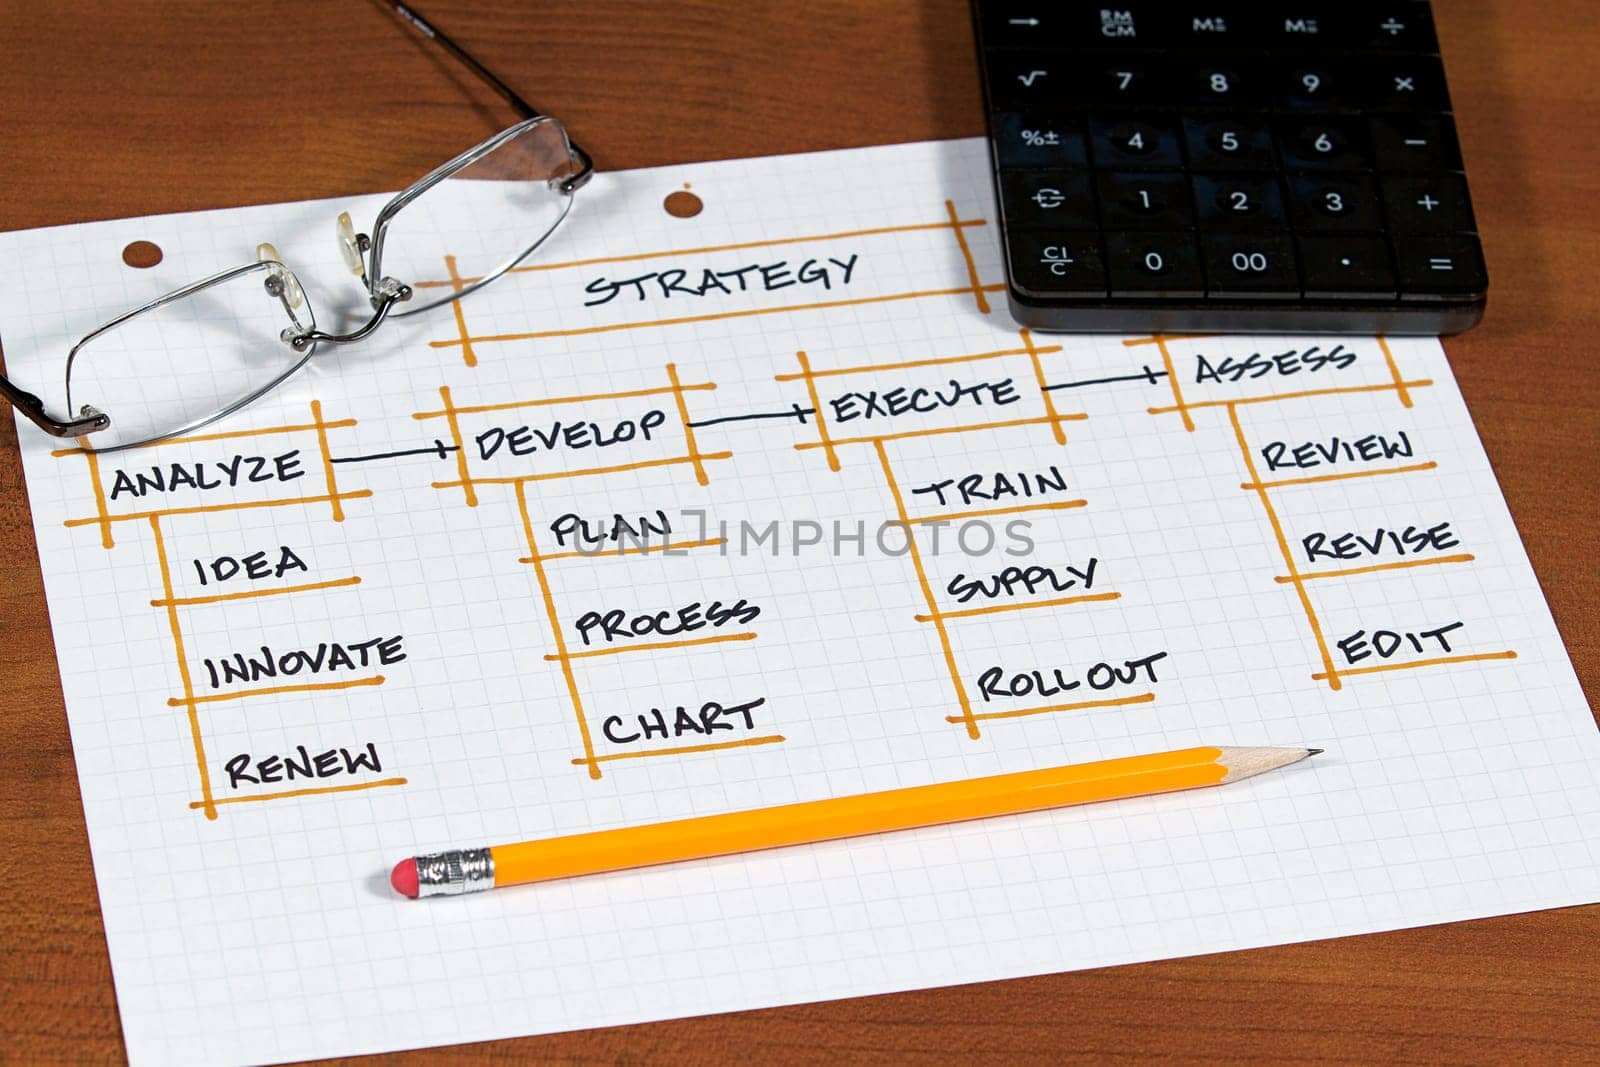 → RM CM M± M= ÷
√ 7 8 9 ×
%± 4 5 6 −
1 2 3 +
CI/C 0 00 . =
STRATEGY
ANALYZE DEVELOP EXECUTE ASSESS
IDEA PLAN TRAIN REVIEW
INNOVATE PROCESS SUPPLY REVISE
RENEW CHART ROLLOUT EDIT
UNLIMPHOTOS